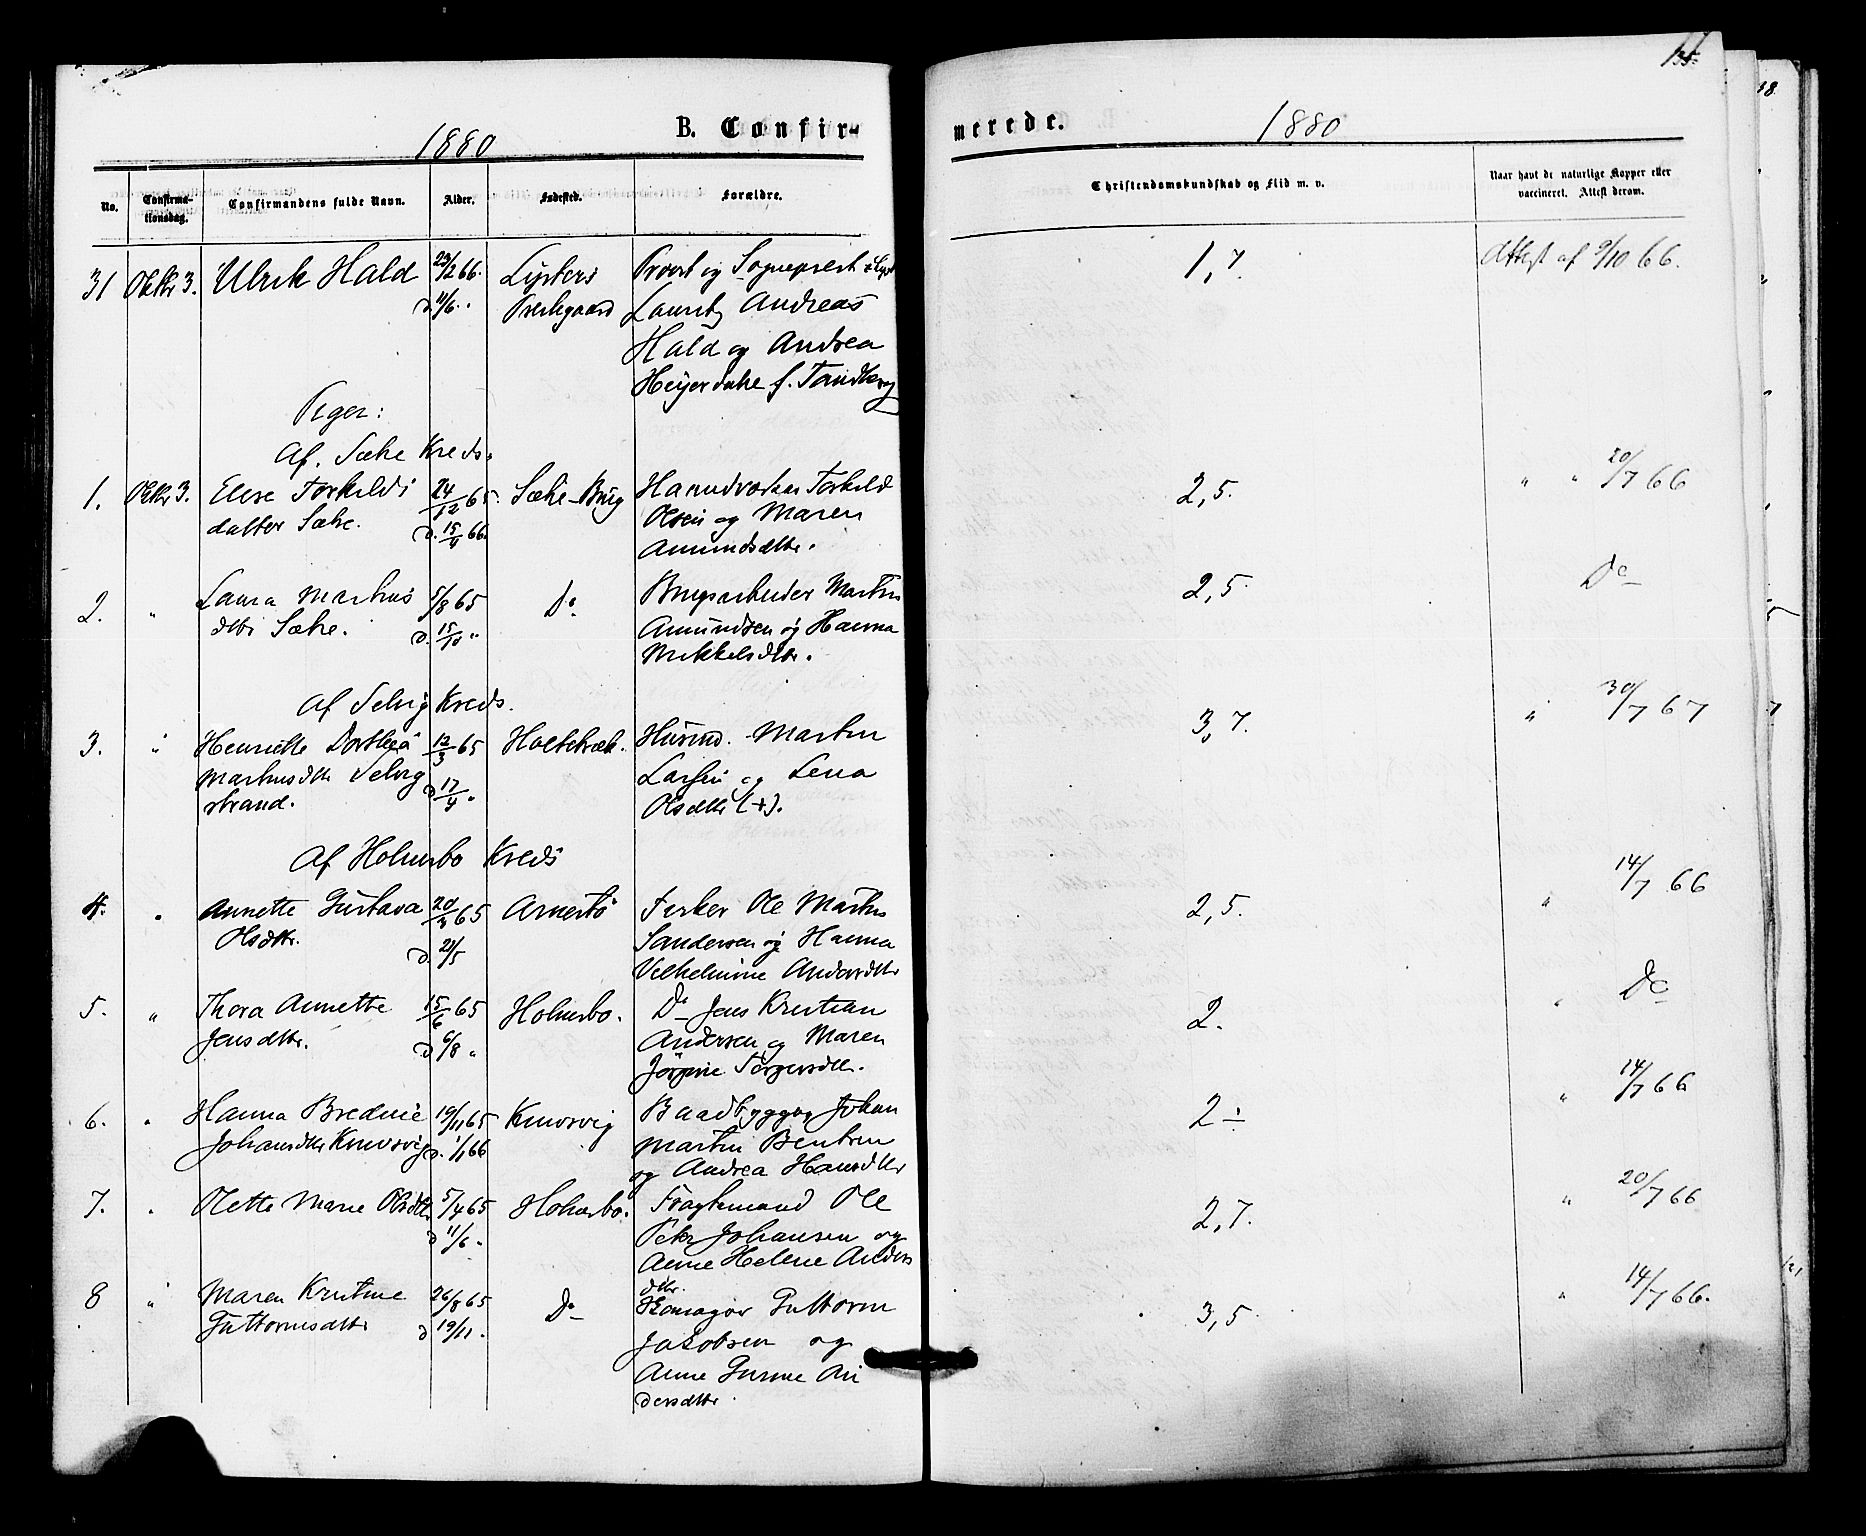 135.
1880 B. Confir-
merede. 1880
No.
Confirma-
tionsdag.
Confirmandens fulde Navn.
Alder.
Fødested.
Forældre.
Christendomskundskab og Flid m. v.
Naar havt de naturlige Kopper eller
vaccineret. Attest derom.
31 Oktbr 3. Ulrik Hald 23/2 66. Lysters Provst og Sogneprest i Lyst
d. 11/6. " Prestegaard Lauritz Andreas
Hald og Andrea
Heyerdahl f. Tandberg
1,7.
Attest af 9/10 66.
Piger:
Af. Sætre Kreds.
1. Oktbr 3. Elise Torkilds 24/12 65. Sætre-Brug Torkild
datter Sætre. d. 15/4 66. Olsen og Maren
Amundsdttr.
2,5. " " 20/7 66
2. " Laura Martinus 5/8 65 Do Brugsarbeider Martin
dttr Sætre. d. 15/10 " Amundsen og Hanna
Mikkelsdttr.
2,5. Do
Af Selvig Kreds.
3. " Henriette Dorthea 12/3 65 Husmd. Martin
Martinsdttr Selvig d 17/4 " Larsen og Lena
strand. Olsdttr (+).
3,7. " 30/7 67
Af Holmsbo Kreds
4. " Annette Gustava 65 Fisker Ole Martin
Olsdttr. d. 21/5 Sandersen og Hanna
Vilhelmine Andersdttr
2,5. " 14/7 66
5. " Thora Annette 15/6 65 Holmsbo. Do Jens Kristian
Jensdttr. d 6/8 " Andersen og Maren
Jörgine Torgersdttr.
2. " Do
6. " Hanna Bredine 19/11 65 Knivsvig Baadbygger Johan
Johansdttr Knivsvig d. 1/1 66 Martin Bentsen
og Andrea Hansdttr
2 ÷ " 14/7 66
7. " Olette Marie Olsdttr 5/4 65 Holmsbo. Fragtemand Ole
d 11/6 " Peter Johansen og
Anne Helene Anders
dttr.
2,7. " 20/7 66
8 " Maren Kristine 26/8 65 Do Guttorm
Guttormsdttr d 19/11. Jakobsen og
Anne Gurine An
dersdttr.
3,5. " 14/7 66.